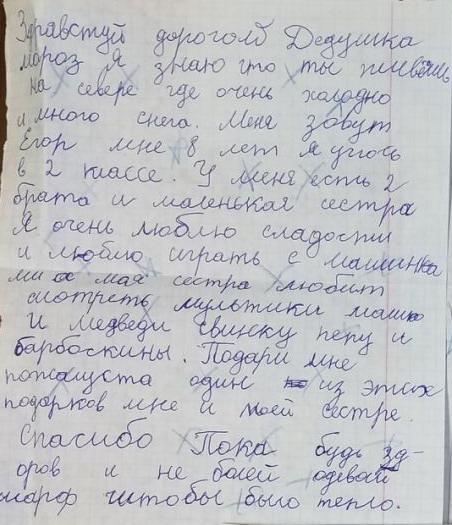 Здравстуй дорогой Дедушка
мороз Я знаю что ты живёшь
на севере где очень холодно
и много снега. Меня зовут
Егор мне 8 лет я учюсь
в 2 классе. У меня есть 2
брата и маленькая сестра
Я очень люблю сладости
и люблю играть с машинка
ми а мая сестра любит
смотреть мультики маша
И медведи свинку пепу и
барбоскины. Подари мне
пожалуста один из этих
подарков мне и моей сестре.
Спасибо Пока будь зд-
оров и не болей одевай
шарф чтобы было тепло.